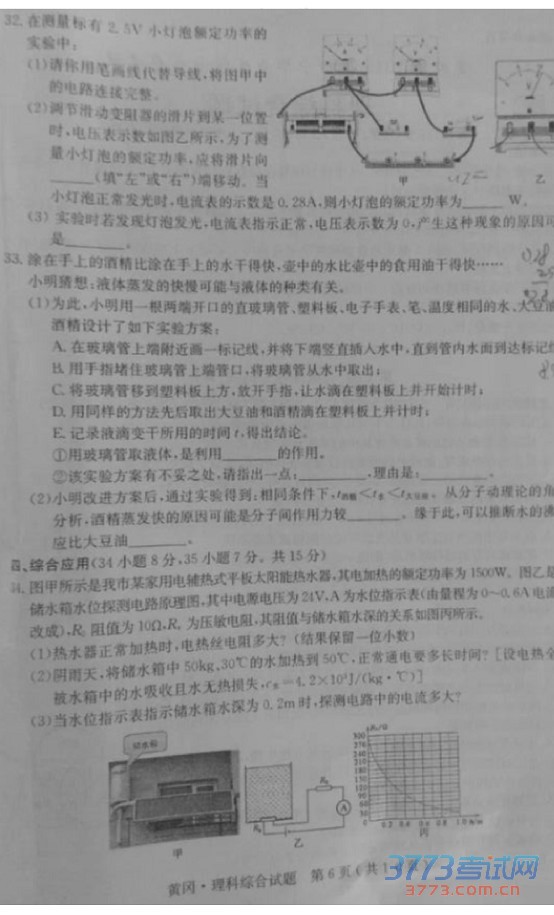 32. 在测量标有 2.5V 小灯泡额定功率的
实验中：
(1)请你用笔画线代替导线，将图甲中
的电路连接完整。
(2)调节滑动变阻器的滑片到某一位置
时，电压表示数如图乙所示，为了测
量小灯泡的额定功率，应将滑片向
______(填“左”或“右”)端移动。当
小灯泡正常发光时，电流表的示数是 0.28A，则小灯泡的额定功率为______W。
甲
乙
(3) 实验时若发现灯泡发光，电流表指示正常，电压表示数为 0，产生这种现象的原因可
是________。
33. 涂在手上的酒精比涂在手上的水干得快，壶中的水比壶中的食用油干得快……
小明猜想：液体蒸发的快慢可能与液体的种类有关。
(1)为此，小明用一根两端开口的直玻璃管、塑料板、电子手表、笔、温度相同的水、大豆油
酒精设计了如下实验方案：
A. 在玻璃管上端附近画一标记线，并将下端竖直插入水中，直到管内水面到达标记线
B. 用手指堵住玻璃管上端管口，将玻璃管从水中取出；
C. 将玻璃管移到塑料板上方，放开手指，让水滴在塑料板上并开始计时；
D. 用同样的方法先后取出大豆油和酒精滴在塑料板上并计时；
E. 记录液滴变干所用的时间 t，得出结论。
①用玻璃管取液体，是利用________的作用。
②该实验方案有不妥之处，请指出一点：__________，理由是：__________。
(2)小明改进方案后，通过实验得到：相同条件下，t酒精＜t水＜t大豆油。从分子动理论的角
分析，酒精蒸发快的原因可能是分子间作用力较________。缘于此，可以推断水的沸
应比大豆油________。
四、综合应用(34 小题 8 分，35 小题 7 分。共 15 分)
34. 图甲所示是我市某家用电辅热式平板太阳能热水器，其电加热的额定功率为 1500W。图乙是
储水箱水位探测电路原理图，其中电源电压为 24V，A 为水位指示表(由量程为 0～0.6A 电流
改成)，R0 阻值为 10Ω，Rx 为压敏电阻，其阻值与储水箱水深的关系如图丙所示。
(1)热水器正常加热时，电热丝电阻多大？(结果保留一位小数)
(2)阴雨天，将储水箱中 50kg、30℃的水加热到 50℃，正常通电要多长时间？[设电热全
被水箱中的水吸收且水无热损失，c水=4.2×10³J/(kg·℃)]
(3)当水位指示表指示储水箱水深为 0.2m 时，探测电路中的电流多大？
储水箱
甲
乙
丙
黄冈·理科综合试题 第 6 页(共
3773考试网
3773.com.cn